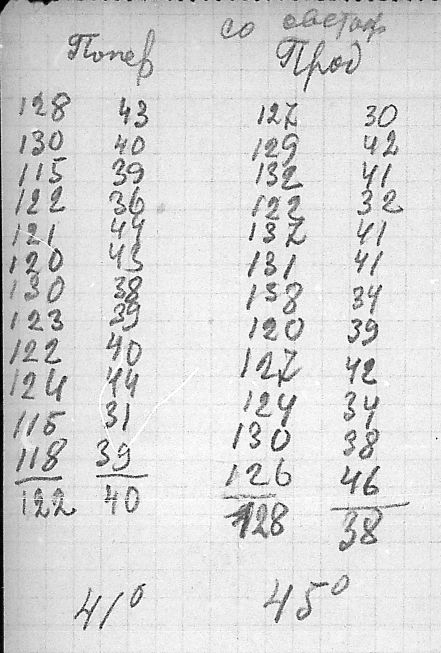 со светоф
Попер Прод
128 43 127 30
130 40 129 42
115 39 132 41
122 36 122 32
121 44 137 41
120 43 131 41
130 38 138 34
123 39 120 39
122 40 127 42
124 44 124 34
115 31 130 38
118 39 126 46
122 40 128 38
41° 45°